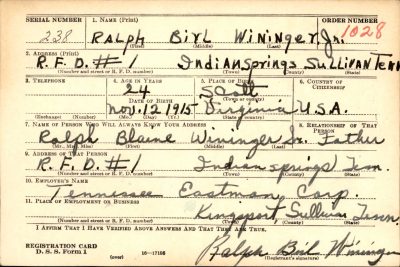 SERIAL NUMBER 1. NAME (Print) ORDER NUMBER
238 RALPH BIRL WININGER, Jr. 1028
(First) (Middle) (Last)
2. ADDRESS (Print)
R.F.D. # 1 Indian springs Sullivan Tenn
(Number and street or R. F. D. number) (Town) (County) (State)
3. TELEPHONE 4. AGE IN YEARS 5. PLACE OF BIRTH 6. COUNTRY OF CITIZENSHIP
24 Scott
DATE OF BIRTH (Town or county)
Nov. 12 1915 Virginia U.S.A.
(Exchange) (Number) (Mo.) (Day) (Yr.) (State or country)
7. NAME OF PERSON WHO WILL ALWAYS KNOW YOUR ADDRESS 8. RELATIONSHIP OF THAT PERSON
Ralph Blaine Wininger Sr. Father
9. ADDRESS OF THAT PERSON
R.F.D. # 1 Indian springs Tenn.
(Number and street or R. F. D. number) (Town) (County) (State)
10. EMPLOYER'S NAME
Tennessee Eastman Corp.
11. PLACE OF EMPLOYMENT OR BUSINESS
Kingsport, Sullivan Tenn.
(Number and street or R. F. D. number) (Town) (County) (State)
I AFFIRM THAT I HAVE VERIFIED ABOVE ANSWERS AND THAT THEY ARE TRUE.
REGISTRATION CARD
D. S. S. Form 1 (over) 16—17105 Ralph Birl Wininger
(Registrant's signature)